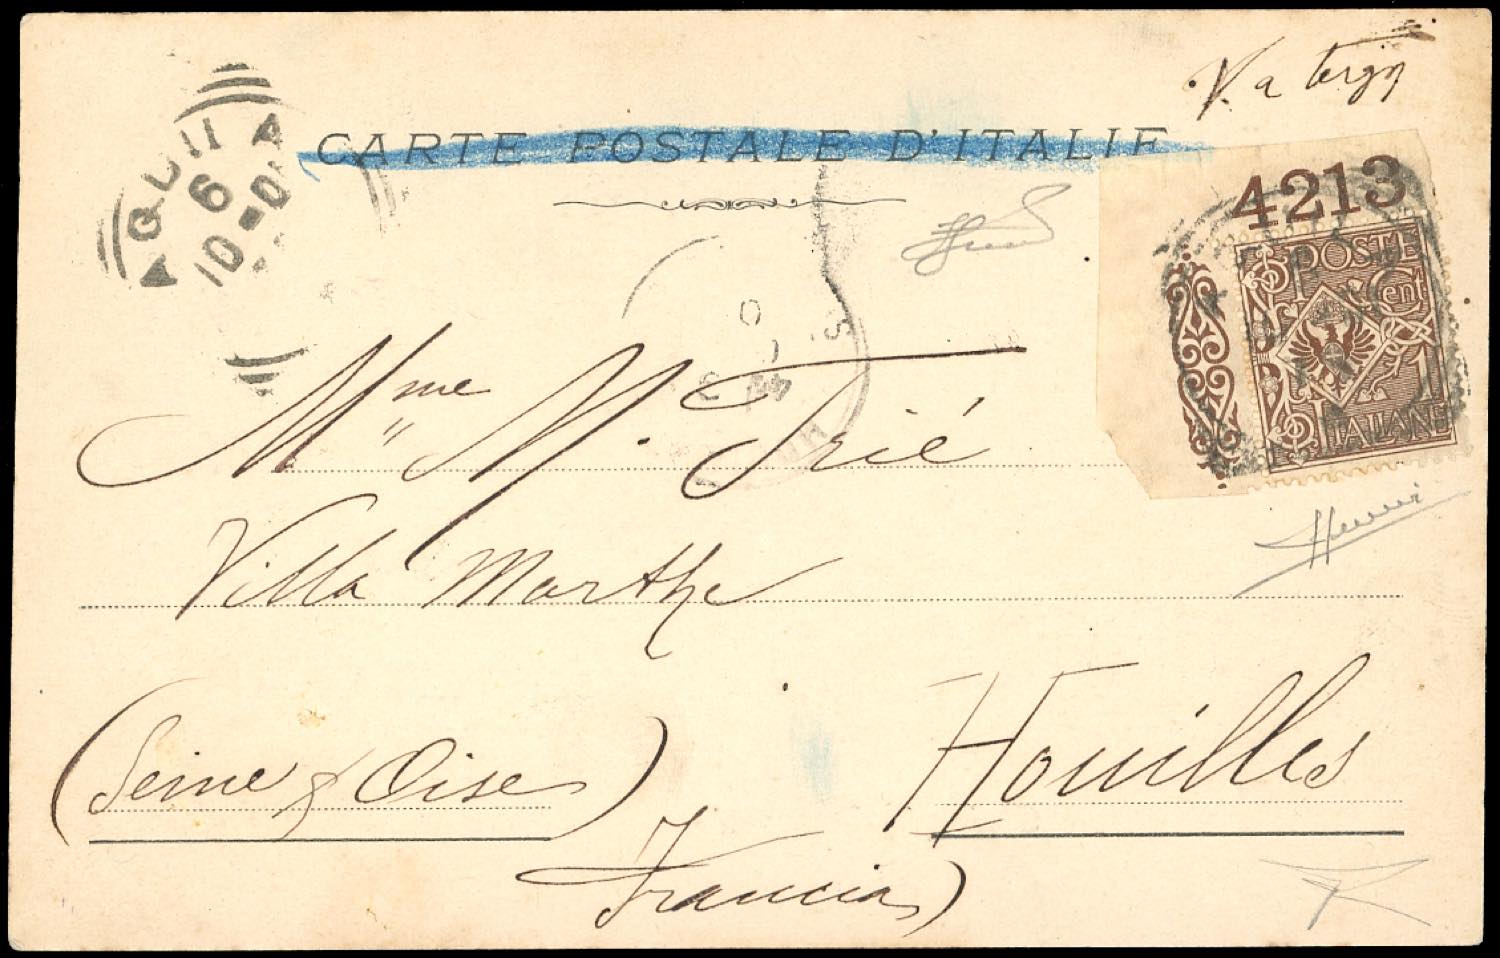 V. a tergo
CARTE POSTALE D'ITALIE
4213
POSTE
1 Cent
ITALIANE
Mme M. Trié
Villa Marthe
(Seine & Oise)
Houilles
Francia)